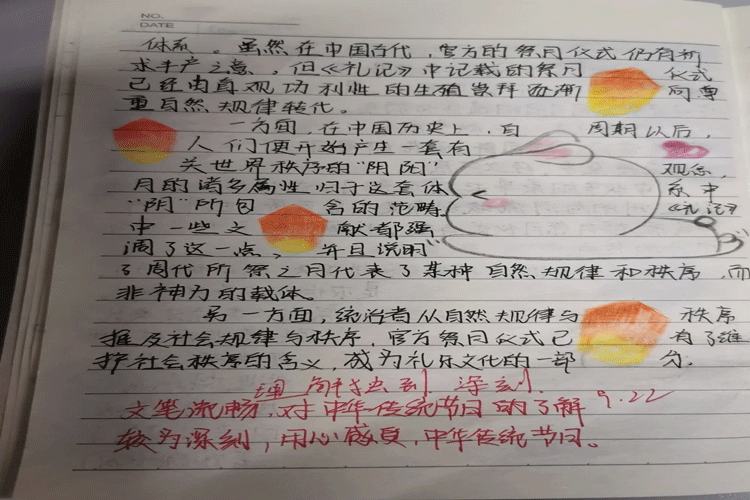 NO.
DATE
体系。虽然在中国古代,官方的祭月仪式仍有祈
求丰产之意,但《礼记》中记载的祭月仪式
已经由直观功利性的生殖崇拜逐渐向尊
重自然规律转化。
一方面,在中国历史上,自周期以后,
人们便开始产生一套有
关世界秩序的"阴阳"观念,
月的诸多属性归于这套体系中
"阴"所包含的范畴。《礼记》
中一些文献都强
调了这一点,并且说明
了周代所祭之月代表了某种自然规律和秩序,而
非神力的载体。
另一方面,统治者从自然规律与秩序
推及社会规律与秩序,官方祭月仪式已有了维
护社会秩序的含义,成为礼乐文化的一部分。
理解深刻
文笔流畅,对中华传统节日的了解
较为深刻,用心感受,中华传统节日。
9.22